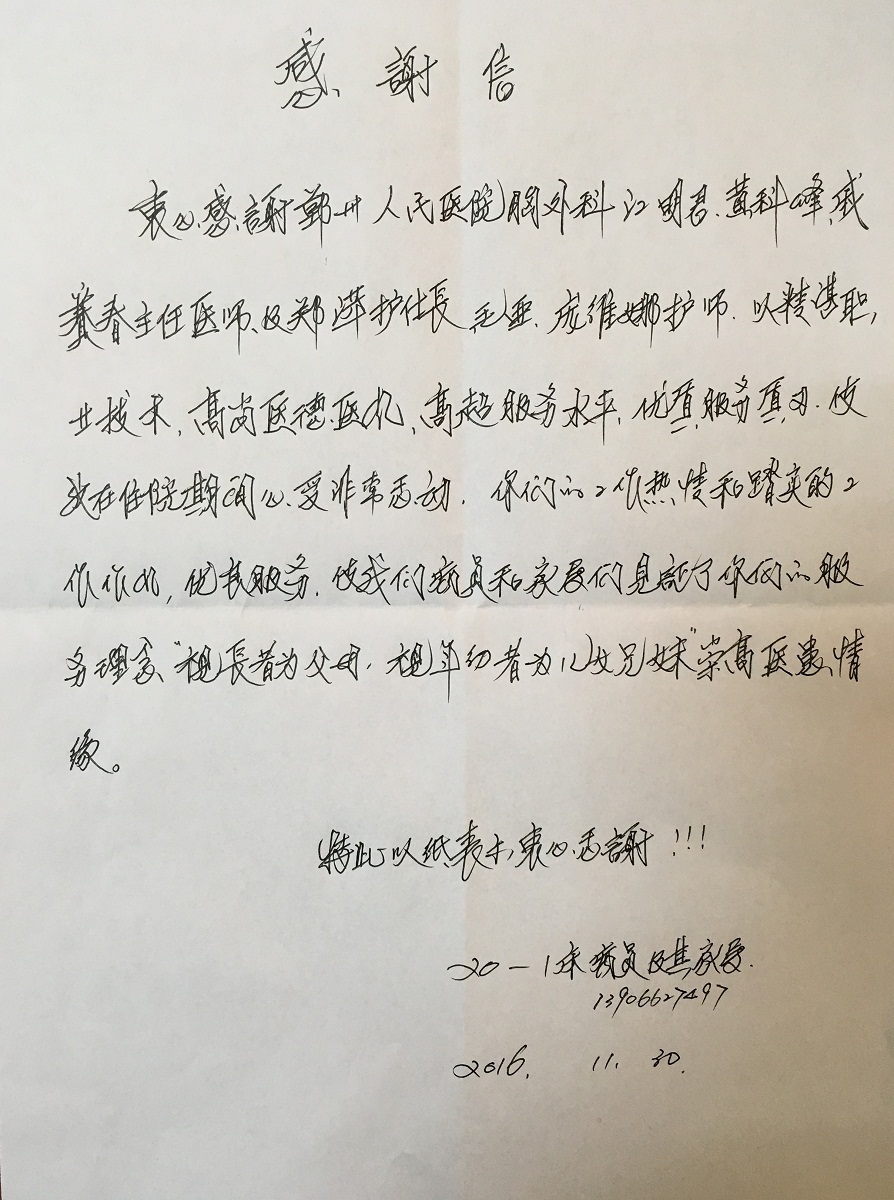 感謝信
衷心感謝鄞卅人民医院胸外科江明君.黄科峰,戚
養春主任医师.及郑萍护仕長 毛亜.庞维娜护师.以精湛职,
业技术,高尚医德.医风,高超服务水平,优质服务质.使
我在住院期间心受非常感动.你们的工作热情和踏实的工
作作风,优ert服务.使我们病員和家属们見証了你们的服
务理念"視長者为父母,視年幼者为儿女兄妹"崇高医患情
缘。
特此以纸表示衷心感謝!!!
20-1床病員及其家属.
13906627497
2016. 11. 30.